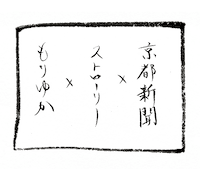 京都新聞
×
ストローリー
×
もりゆか